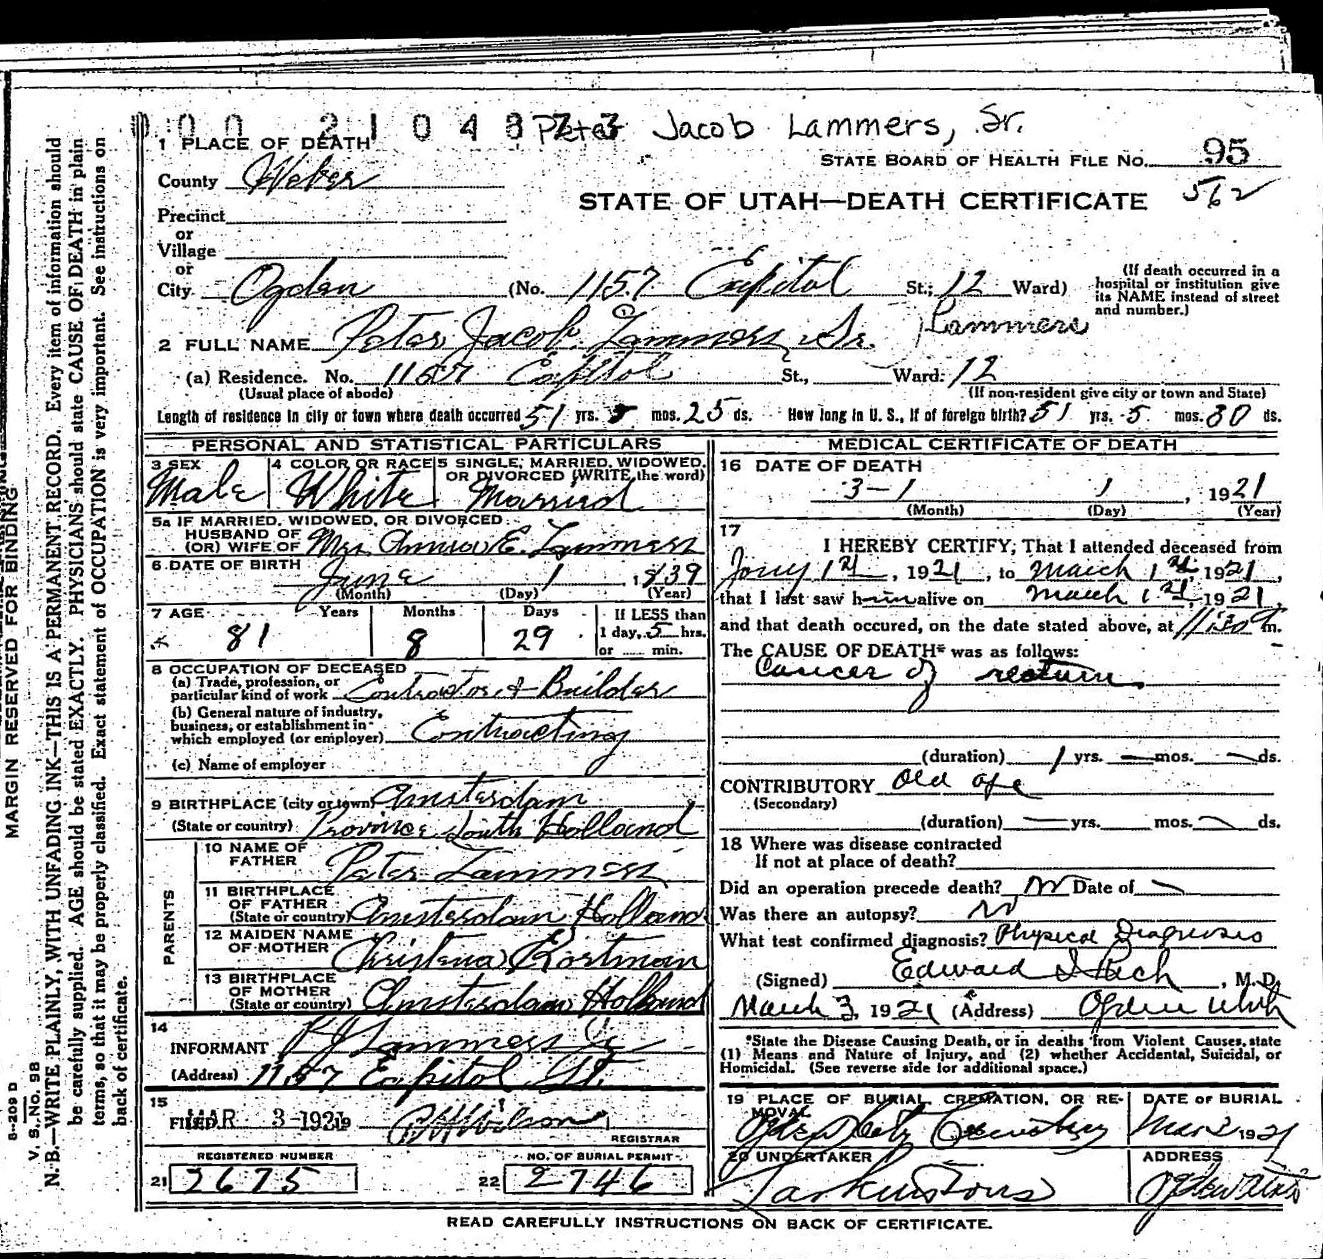 000 2104823 Peter Jacob Lammers, Sr.
1 PLACE OF DEATH
STATE BOARD OF HEALTH FILE No. 95
County Weber
562
STATE OF UTAH—DEATH CERTIFICATE
Precinct
or
Village
or
City Ogden (No. 1157 Capitol St.; 12 Ward)
(If death occurred in a hospital or institution give its NAME instead of street and number.)
Lammers
2 FULL NAME Peter Jacob Lammers Sr.
(a) Residence. No. 1157 Capitol St., Ward. 12
(Usual place of abode) (If non-resident give city or town and State)
Length of residence in city or town where death occurred 51 yrs. 5 mos. 25 ds. How long in U. S., if of foreign birth? 51 yrs. 5 mos. 30 ds.
PERSONAL AND STATISTICAL PARTICULARS
3 SEX Male
4 COLOR OR RACE White
5 SINGLE, MARRIED, WIDOWED, OR DIVORCED (WRITE the word) Married
5a IF MARRIED, WIDOWED, OR DIVORCED
HUSBAND OF
(OR) WIFE OF Mrs. Annie E. Lammers
6 DATE OF BIRTH June 1, 1839
(Month) (Day) (Year)
7 AGE Years Months Days If LESS than
81 8 29 1 day, 5 hrs.
or ..... min.
8 OCCUPATION OF DECEASED
(a) Trade, profession, or
particular kind of work Contractor & Builder
(b) General nature of industry,
business, or establishment in
which employed (or employer) Contracting
(c) Name of employer
9 BIRTHPLACE (city or town) Amsterdam
(State or country) Province South Holland
PARENTS
10 NAME OF
FATHER Peter Lammers
11 BIRTHPLACE
OF FATHER
(State or country) Amsterdam Holland
12 MAIDEN NAME
OF MOTHER Christena Kortman
13 BIRTHPLACE
OF MOTHER
(State or country) Amsterdam Holland
14
INFORMANT P J Lammers Jr
(Address) 1157 Capitol St.
15
FILED MAR 3-1921 19
REGISTRAR
REGISTERED NUMBER NO. OF BURIAL PERMIT
21 2675 22 2746
MEDICAL CERTIFICATE OF DEATH
16 DATE OF DEATH
3-1 1, 1921
(Month) (Day) (Year)
17
I HEREBY CERTIFY; That I attended deceased from
Jany 1st, 1921, to March 1st, 1921,
that I last saw him alive on March 1st, 1921
and that death occured, on the date stated above, at 11:30 m.
The CAUSE OF DEATH* was as follows:
Cancer of rectum
(duration) 1 yrs. — mos. — ds.
CONTRIBUTORY Old age
(Secondary)
(duration) — yrs. mos. — ds.
18 Where was disease contracted
If not at place of death?
Did an operation precede death? no Date of —
Was there an autopsy? no
What test confirmed diagnosis? Physical Diagnosis
(Signed) Edward I Rich, M.D.
March 3, 1921 (Address) Ogden Utah
*State the Disease Causing Death, or in deaths from Violent Causes, state
(1) Means and Nature of Injury, and (2) whether Accidental, Suicidal, or
Homicidal. (See reverse side for additional space.)
19 PLACE OF BURIAL, CREMATION, OR REMOVAL DATE OF BURIAL
Ogden City Cemetery Mar 3 1921
20 UNDERTAKER ADDRESS
Larkin & Sons Ogden Utah
READ CAREFULLY INSTRUCTIONS ON BACK OF CERTIFICATE.
MARGIN RESERVED FOR BINDING
S-209 D
V. S. No. 98
N. B.—WRITE PLAINLY, WITH UNFADING INK—THIS IS A PERMANENT RECORD. Every item of information should
be carefully supplied. AGE should be stated EXACTLY. PHYSICIANS should state CAUSE OF DEATH in plain
terms, so that it may be properly classified. Exact statement of OCCUPATION is very important. See instructions on
back of certificate.